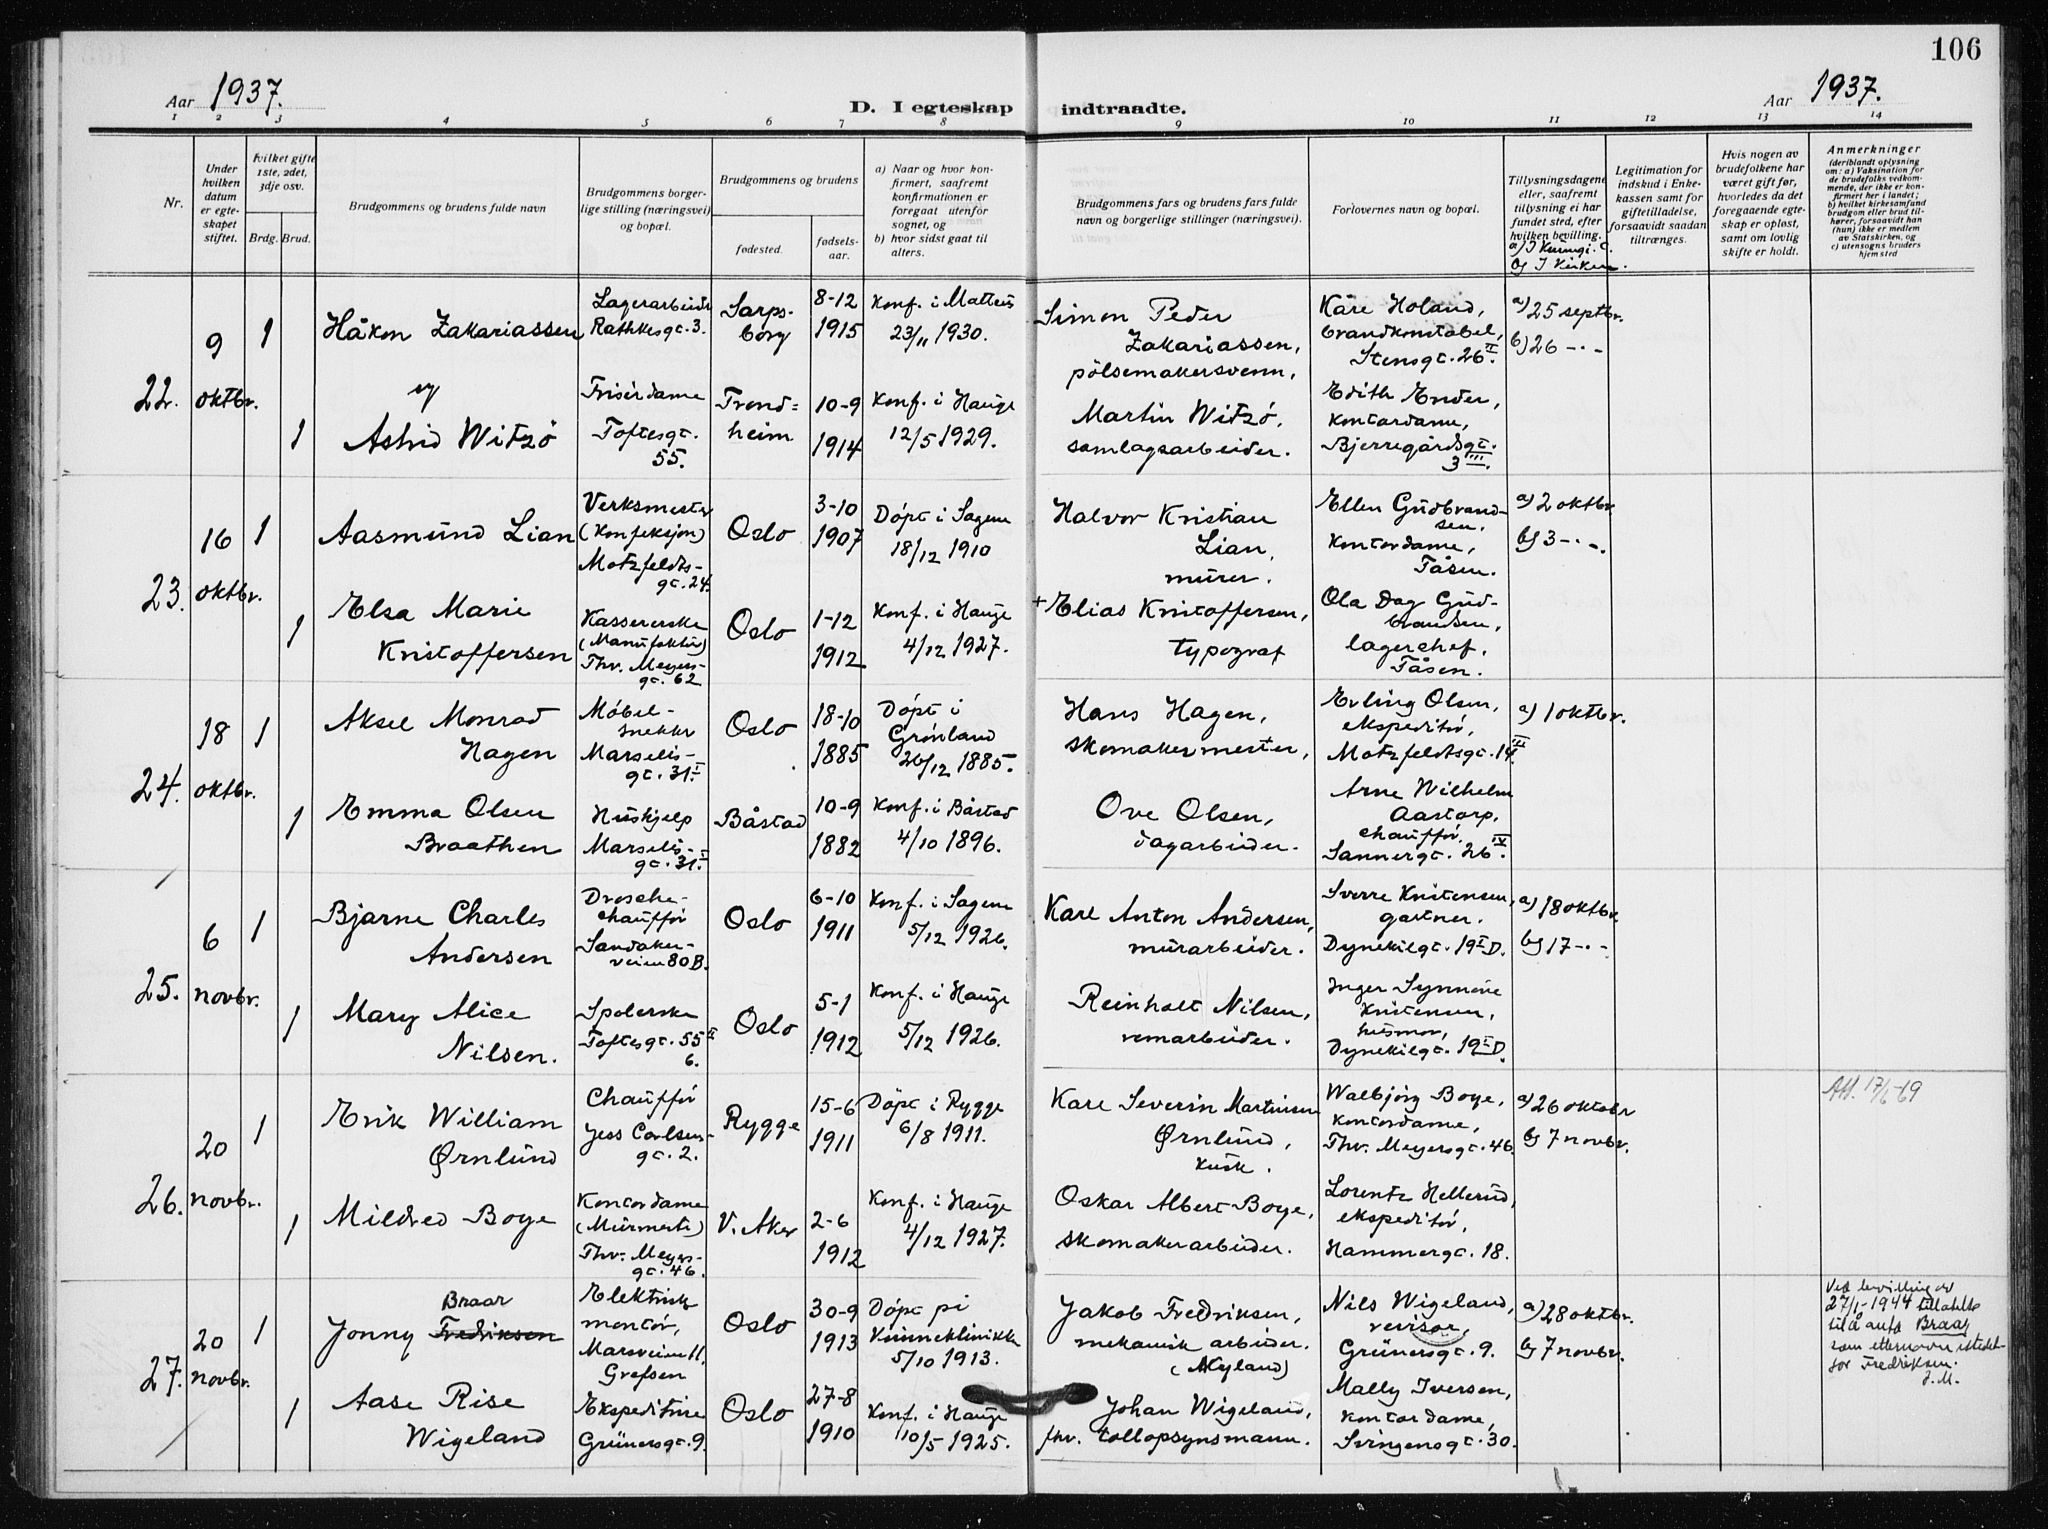 106
Aar 1937.
D. I egteskap indtraadte.
Aar 1937.
1 2 3 4 5 6 7 8 9 10 11 12 13 14
Nr.
Under
hvilken
datum
er egte-
skapet
stiftet.
Hvilket gifte
1ste, 2det,
3dje osv.
Brdg. Brud.
Brudgommens og brudens fulde navn
Brudgommens borger-
lige stilling (næringsvei)
og bopæl.
Brudgommens og brudens
fødested.
fødsels-
aar.
a) Naar og hvor kon-
firmert, saafremt
konfirmationen er
foregaat utenfor
sognet, og
b) hvor sidst gaat til
alters.
Brudgommens fars og brudens fars fulde
navn og borgerlige stillinger (næringsvei).
Forlovernes navn og bopæl.
Tillysningsdagene
eller, saafremt
tillysning ei har
fundet sted, efter
hvilken bevilling.
b) I Kirken.
Legitimation for
indskud i Enke-
kassen samt for
giftetilladelse,
forsaavidt saadan
tiltrænges.
Hvis nogen av
brudefolkene har
været gift før,
hvorledes da det
foregaaende egte-
skap er opløst,
samt om lovlig
skifte er holdt.
Anmerkninger
(deriblandt oplysning
om: a) Vaksination for
de brudefolks vedkom-
mende, der ikke er kon-
firmert her i landet;
b) hvilket kirkesamfund
brudgom eller brud til-
hører, forsaavidt han
(hun) ikke er medlem
av Statskirken, og
c) utensogns bruders
hjemsted
22.
9
oktbr.
1
Håkon Zakariassen
Lagerarbeider
Rathkesgt. 3.
Sarps-
borg
8-12
1915
Konf. i Matteus
23/11 1930.
Simon Peder
Zakariassen,
pölsemakersvenn,
Kåre Holand,
brandkonstabel,
Stensgt. 26 II.
a) 25 septbr.
b) 26 -·-
og
1
Astrid Witzö
Frisördame
Toftesgt.
55.
Trond=
heim
10-9
1914
Konf. i Hauge
12/5 1929.
Martin Witzö,
samlagsarbeider.
Edith Ender,
kontordame,
Bjerregårdsgt.
3 III.
23.
16
oktbr.
1
Aasmund Lian
Verksmester
(Konfeksjon)
Motzfeldts-
gt. 24.
Oslo
3-10
1907
Döpt i Sagene
18/12 1910
Halvor Kristian
Lian,
murer.
Ellen Gudbrand-
sen,
kontordame,
Tåsen.
a) 2 oktbr.
b) 3 -·-
1
Elsa Marie
Kristoffersen
Kassererske
(Manufaktur)
Thv. Meyers-
gt. 62
Oslo
1-12
1912
Konf. i Hauge
4/12 1927.
+ Elias Kristoffersen,
typograf
Ola Dag Gud-
brandsen,
lagerchef,
Tåsen.
24.
18
oktbr.
1
Aksel Monrad
Hagen
Möbel-
snekker
Marselis-
gt. 31 I.
Oslo
18-10
1885
Döpt i
Grönland
26/12 1885.
Hans Hagen,
skomakermester,
Erling Olsen,
ekspeditör,
Motzfeldtsgt. 14 III
a) 1 oktbr.
1
Emma Olsen
Braathen
Hushjelp
Marselis-
gt. 31 I.
Båstad
10-9
1882
Konf. i Båstad
4/10 1896.
Ove Olsen,
dagarbeider.
Arne Wilhelm
Aastorp,
chaufför,
Sannergt. 26 IV.
25.
6
novbr.
1
Bjarne Charles
Andersen
Drosche-
chaufför
Sandaker-
veien 80 B.
Oslo
6-10
1911
Konf. i Sagene
5/12 1926.
Karl Anton Andersen,
murarbeider.
Sverre Kristensen,
gartner.
Dynekilgt. 19 I D.
a) 18 oktbr.
b) 17 -·-
1
Mary Alice
Nilsen.
Spolerske
Toftesgt. 55 II
6.
Oslo
5-1
1912
Konf. i Hauge
5/12 1926.
Reinholt Nilsen,
remarbeider.
Inger Synnöve
Kristensen,
husmor,
Dynekilgt. 19 I D.
26.
20
novbr.
1
Erik William
Ørnlund
Chaufför
Jess Carlsens-
gt. 2.
Rygge
15-6
1911
Döpt i Rygge
6/8 1911.
Karl Severin Martinisen
Ørnlund,
kusk.
Walbjörg Boye,
kontordame,
Thv. Meyersgt. 46.
a) 26 oktobr
b) 7 novbr.
Att. 17/1-69
1
Mildred Boye
Kontordame
(Murmester)
Thv. Meyers-
gt. 46.
V. Aker
2-6
1912
Konf. i Hauge
4/12 1927.
Oskar Albert Boye,
skomakerarbeider.
Lorentz Hellerud,
ekspeditör,
Hammergt. 18.
27.
20
novbr.
1
Braar
Jonny Fredriksen
Elektrisk
montör,
Marsveien 11.
Grefsen
Oslo
30-9
1913
Döpt på
Kvinneklinikk
5/10 1913.
Jakob Fredriksen,
mekanisk arbeider.
(Nyland)
Nils Wigeland,
revisor,
Grünersgt. 9.
a) 28 oktbr.
b) 7 novbr.
Ved bevilling av
27/1-1944 tillatelse
til å anta Braar
som etternavn istedet-
for Fredriksen.
J.M.
1
Aase Rise
Wigeland
Ekspeditrise
Grünersgt. 9.
Oslo
27-8
1910
Konf. i Hauge
10/5 1925.
Johan Wigeland,
fhv. tollopsynsmann.
Mally Iversen,
kontordame,
Svingensgt. 30.